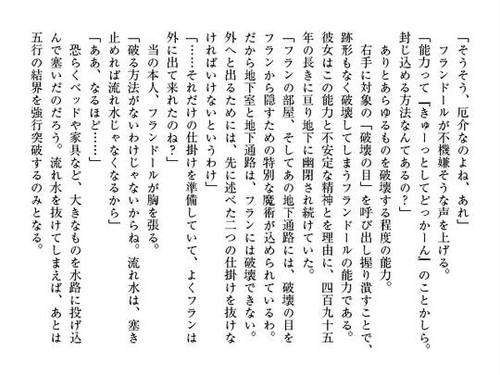 「そうそう、厄介なのよね、あれ」
　フランドールが不機嫌そうな声を上げる。
「能力って『きゅーっとしてどっかーん』のことかしら。
封じ込める方法なんてあるの？」
　ありとあらゆるものを破壊する程度の能力。
　右手に対象の「破壊の目」を呼び出し握り潰すことで、
跡形もなく破壊してしまうフランドールの能力である。
彼女はこの能力と不安定な精神とを理由に、四百九十五
年の長きに亘り地下に幽閉され続けていた。
「フランの部屋、そしてあの地下通路には、破壊の目を
フランから隠すための特別な魔術が込められているわ。
だから地下室と地下通路は、フランには破壊できない。
外へと出るためには、先に述べた二つの仕掛けを抜けな
ければいけないというわけ」
「……それだけの仕掛けを準備していて、よくフランは
外に出て来れたのね？」
　当の本人、フランドールが胸を張る。
「破る方法がないわけじゃないからね。流れ水は、塞き
止めれば流れ水じゃなくなるから」
「ああ、なるほど……」
　恐らくベッドや家具など、大きなものを水路に投げ込
んで塞いだのだろう。流れ水を抜けてしまえば、あとは
五行の結界を強行突破するのみとなる。